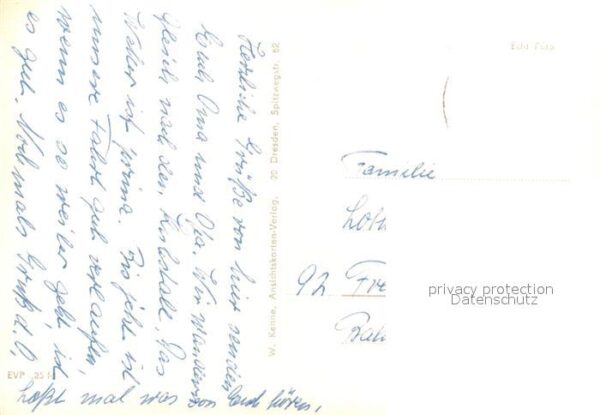 Herzliche Grüße von hier senden
Euch Oma und Opa. Wir wandern
gleich nach der Kuhstall. Das
Wetter ist prima. Bis jetzt ist
unsere Fahrt gut verlaufen,
wenn es so weiter geht, ist
es gut. Nochmals Gruß d. O.
Laßt mal was von Euch hören,
W. Kenne, Ansichtskarten-Verlag, 20 Dresden, Spitzwegstr. 62
EVP
Echt Foto
Familie
92
privacy protection
Datenschutz